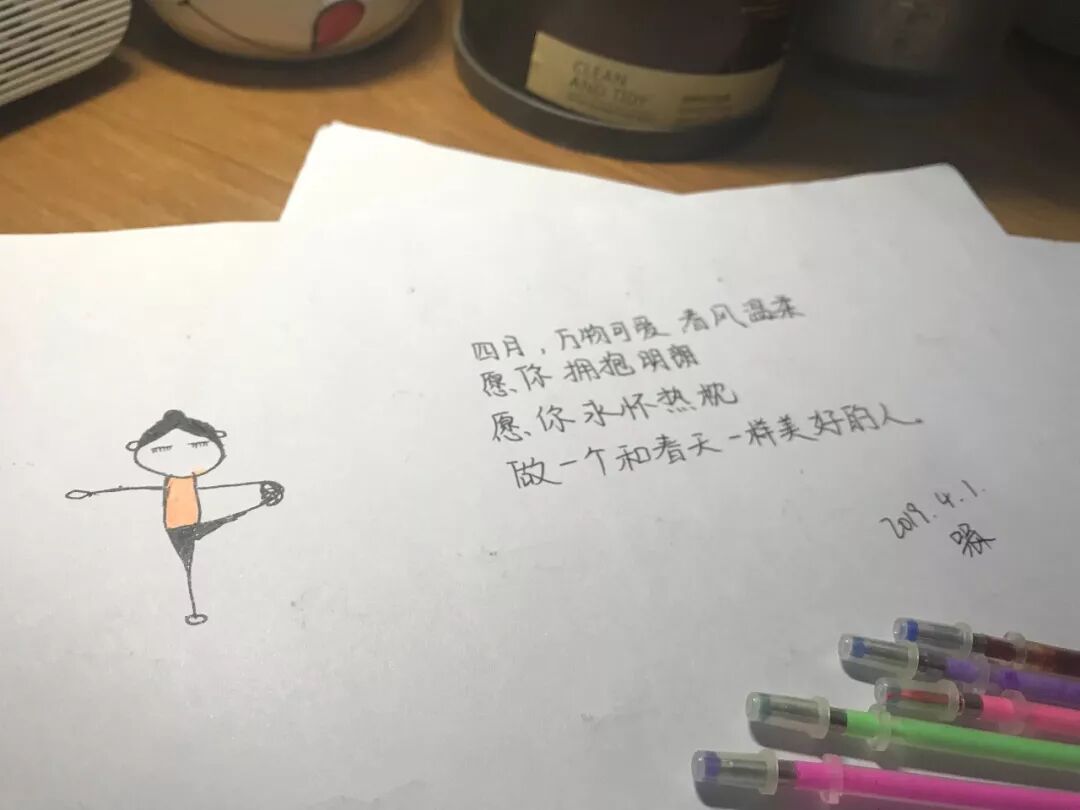 CLEAN
AND TIDY
四月，万物可爱 春风温柔
愿你拥抱明朗
愿你永怀热忱
做一个和春天一样美好的人。
2019.4.1.